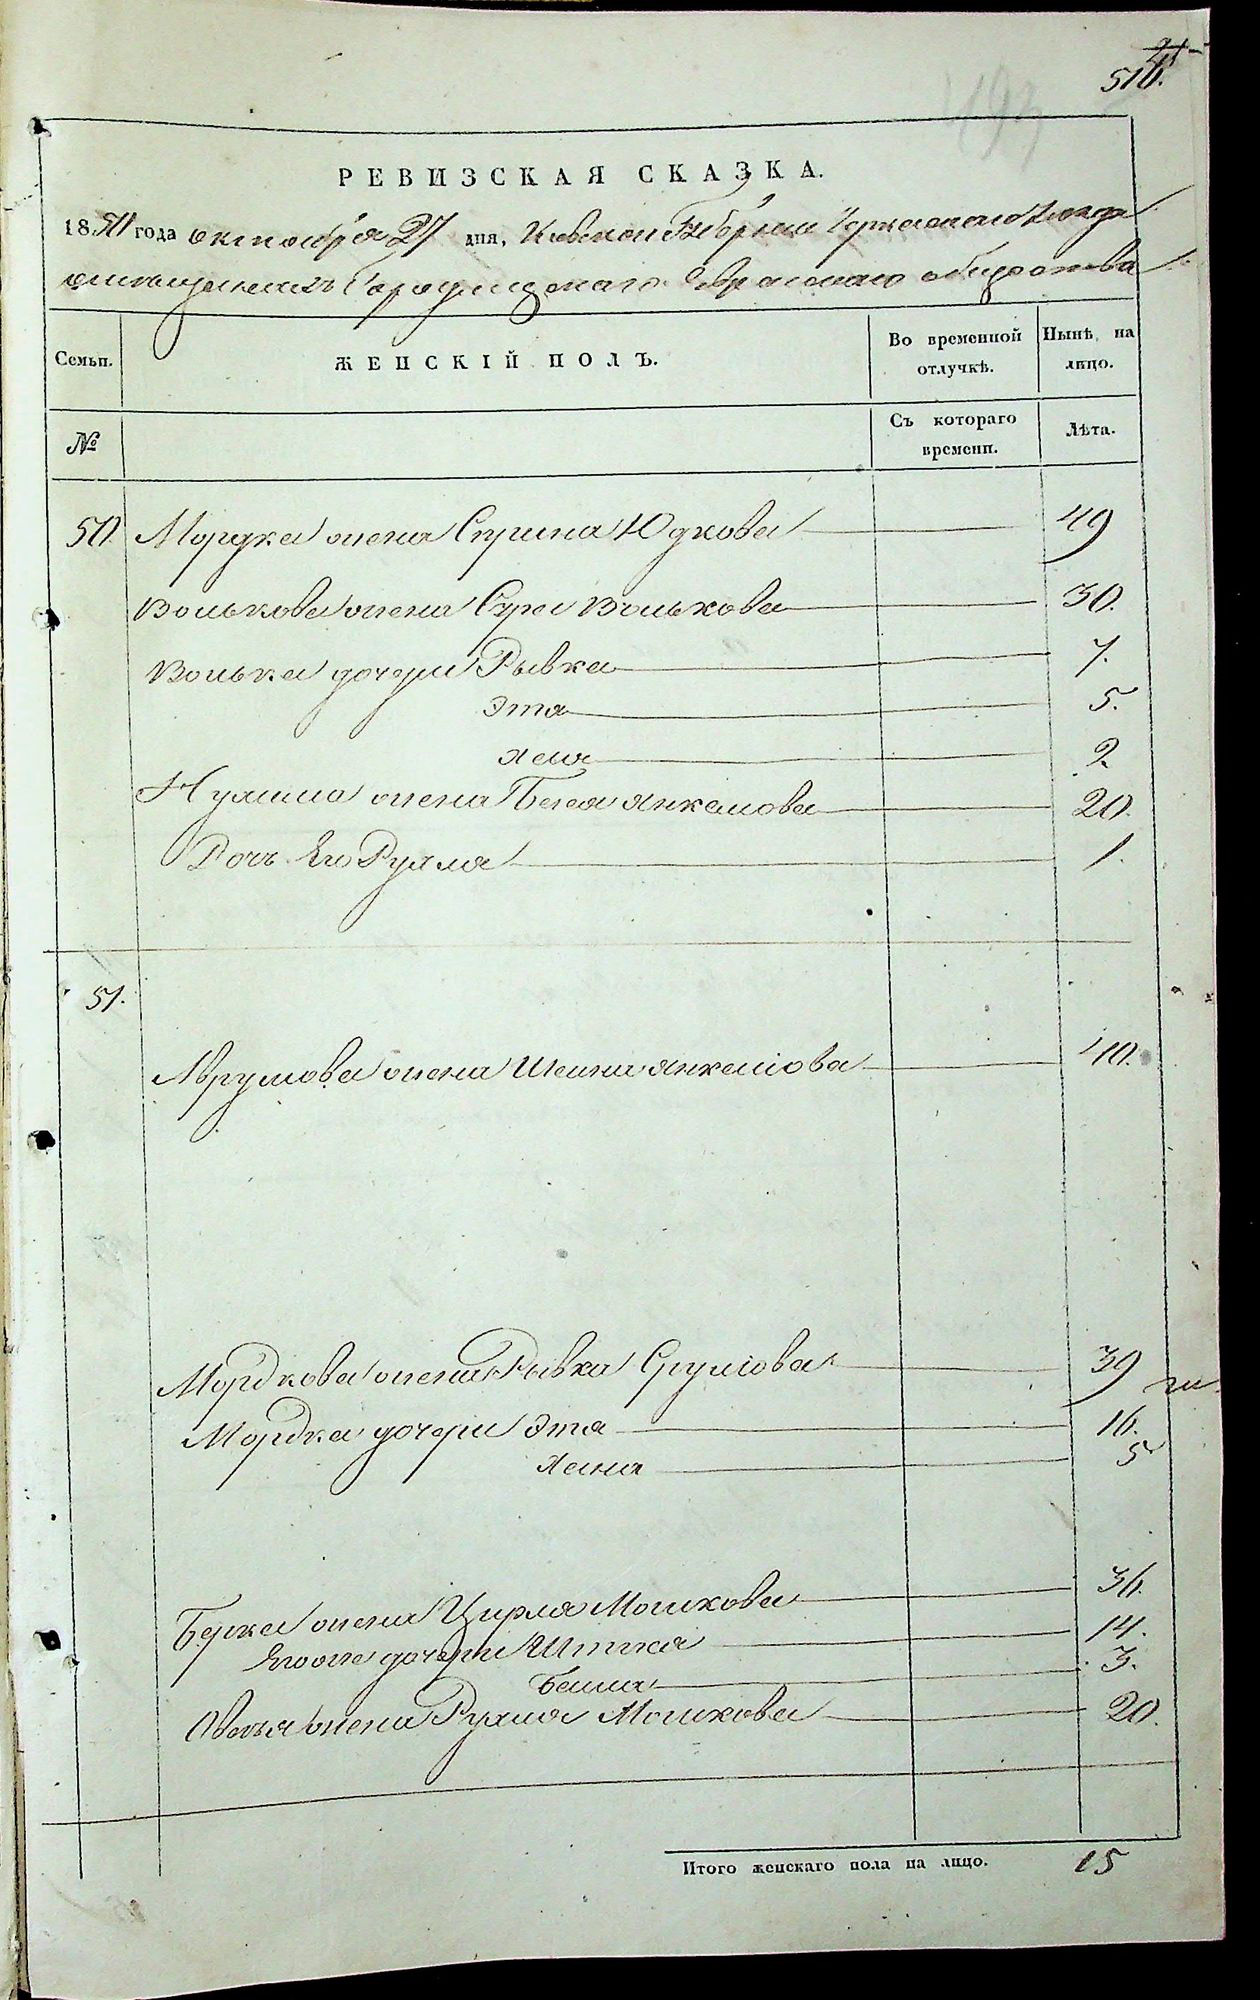 516.
493
РЕВИЗСКАЯ СКАЗКА.
1850 года октября 27 дня, Киевской Губернiи Черкаскаго Уезда
о мещанахъ Городищскаго Еврейскаго общества
Семьи.
ЖЕНСКIЙ ПОЛЪ.
Во временной отлучкѣ.
Нынѣ на лицо.
№
Съ котораго времени.
Лѣта.
50. Мордка жена Сприна Юдкова 49
Волькова жена Сура Волькова 30.
Волька дочери Рывка 7.
Эта 5.
Хая 2.
жена Бася Янкелова 20.
Дочь Его Рухля 1.
51.
Аврумова жена Шейна Янкелiова 40.
Мордкова жена Рывка Срулiова 39
Мордка дочери Эта 16.
Хана 5
Берка жена Цирля Мошкова 36.
Его же дочери 14.
Бейла 3.
Овсея жена Рухля Мошкова 20.
Итого женскаго пола на лицо. 15